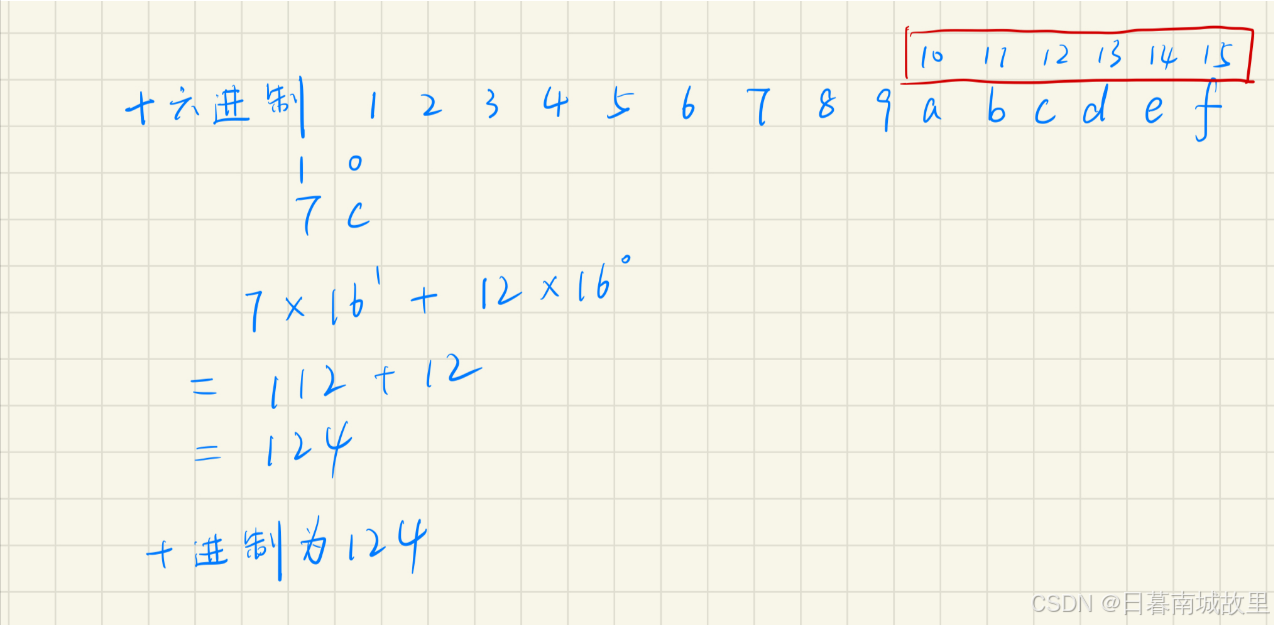 10 11 12 13 14 15
十六进制 1 2 3 4 5 6 7 8 9 a b c d e f
1 0
7 c
7 × 16¹ + 12 × 16⁰
= 112 + 12
= 124
十进制为124
CSDN @日暮南城故里